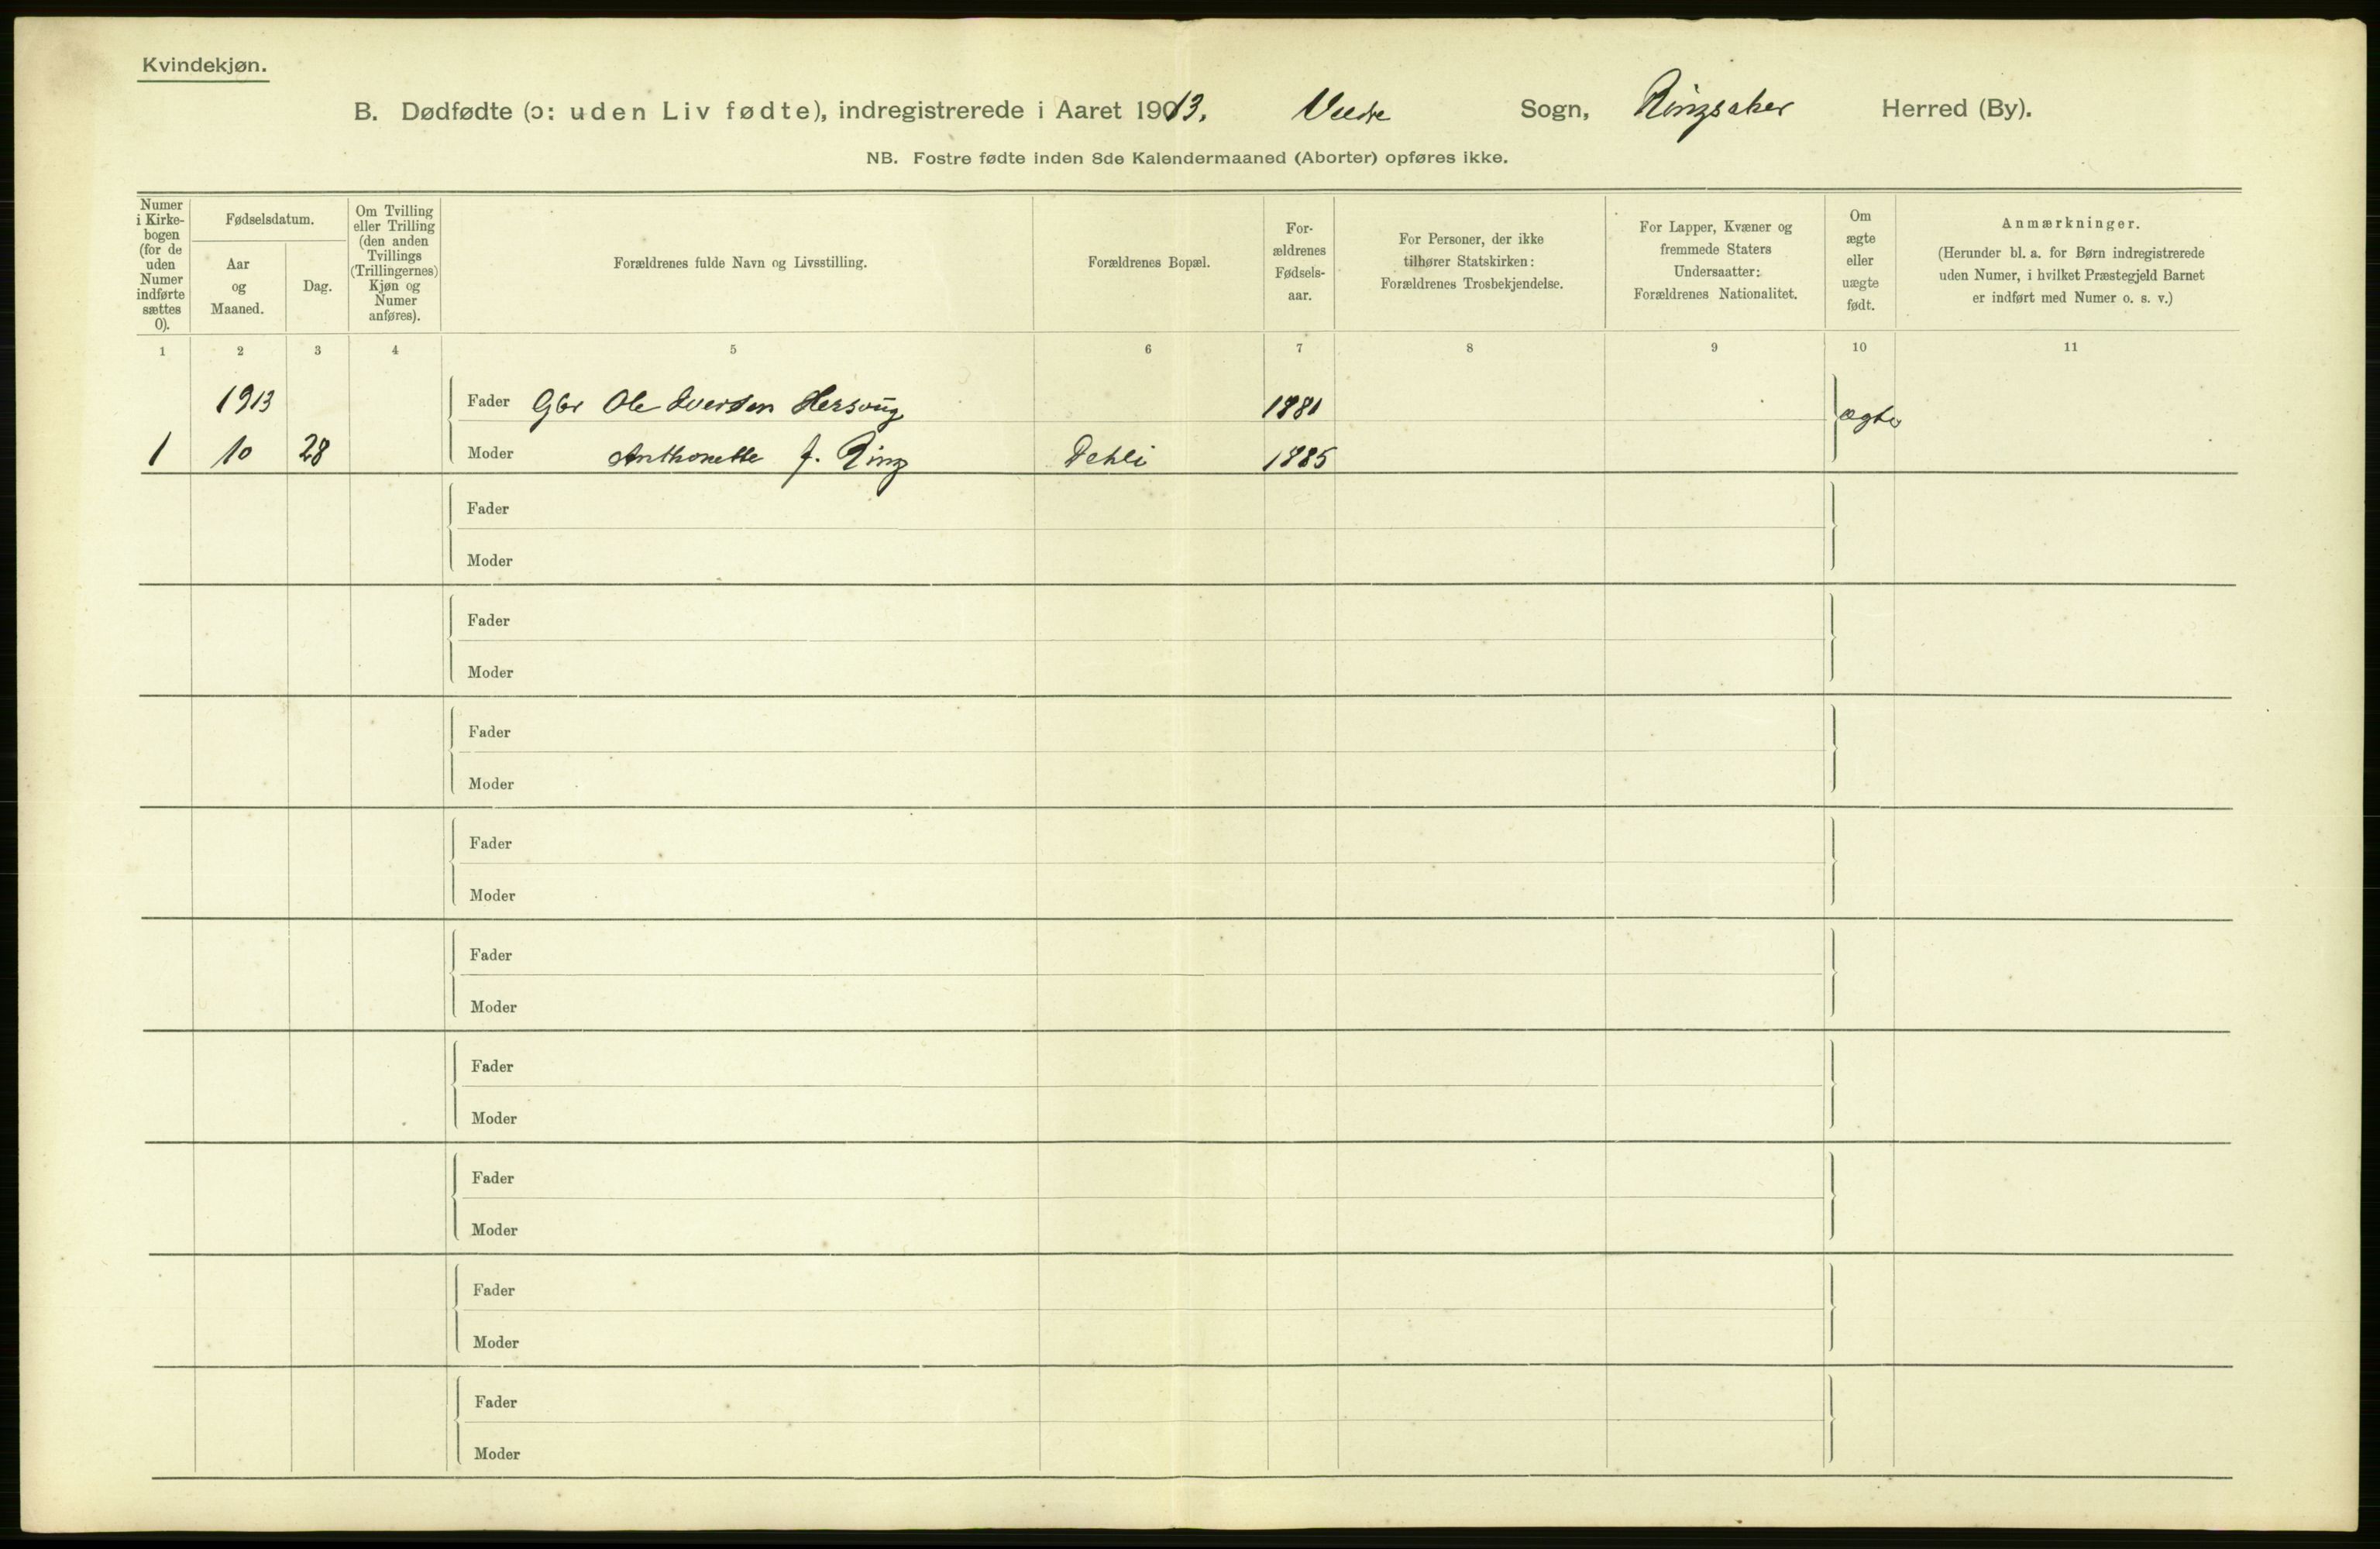 Kvindekjøn.
B. Dødfødte (ɔ: uden Liv fødte), indregistrerede i Aaret 1913. Sogn, Ringsaker Herred (By).
NB. Fostre fødte inden 8de Kalendermaaned (Aborter) opføres ikke.
Numer
i Kirke-
bogen
(for de
uden
Numer
indførte
sættes
0).
Fødselsdatum.
Aar
og
Maaned.
Dag.
Om Tvilling
eller Trilling
(den anden
Tvillings
(Trillingernes)
Kjøn og
Numer
anføres).
Forældrenes fulde Navn og Livsstilling.
Forældrenes Bopæl.
For-
ældrenes
Fødsels-
aar.
For Personer, der ikke
tilhører Statskirken:
Forældrenes Trosbekjendelse.
For Lapper, Kvæner og
fremmede Staters
Undersaatter:
Forældrenes Nationalitet.
Om
ægte
eller
uægte
født.
Anmærkninger.
(Herunder bl. a. for Børn indregistrerede
uden Numer, i hvilket Præstegjeld Barnet
er indført med Numer o. s. v.)
1 2 3 4 5 6 7 8 9 10 11
1913 Fader Gbr Ole Iversen Hersoug 1881 ægte
1 10 28 Moder Anthonette f. Ring Dehli 1885
Fader
Moder
Fader
Moder
Fader
Moder
Fader
Moder
Fader
Moder
Fader
Moder
Fader
Moder
Fader
Moder
Fader
Moder